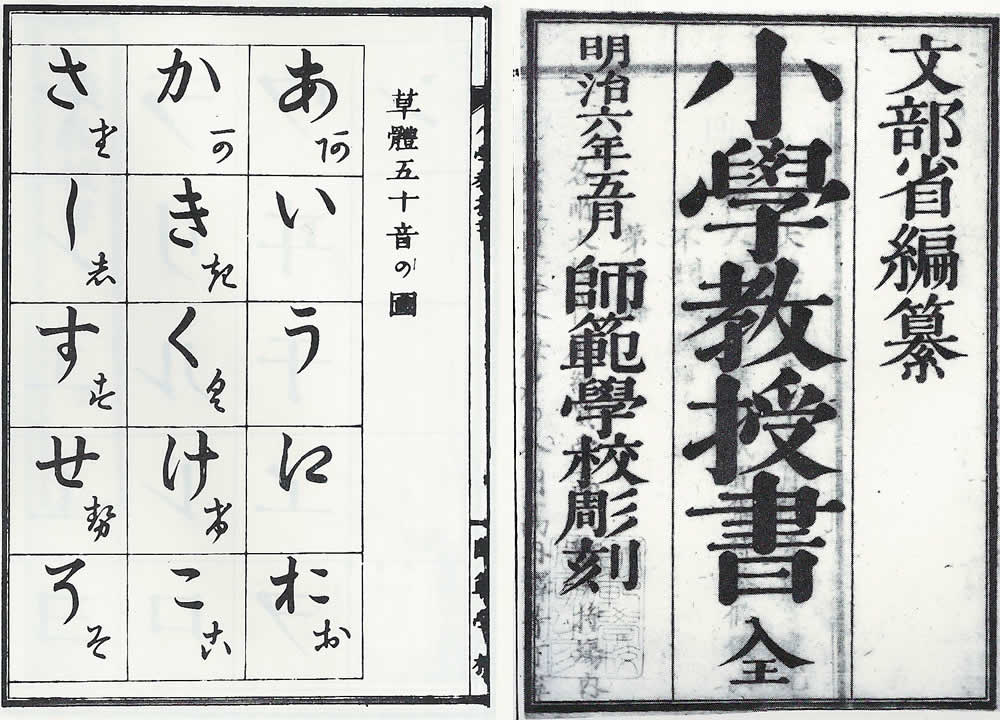 文部省編纂
小學教授書 全
明治六年五月 師範學校彫刻
草體五十音の圖
あ 阿
い
う
江
お 於
か 可
き 起
く 具
け 希
こ 古
さ
し 志
す
せ 勢
そ